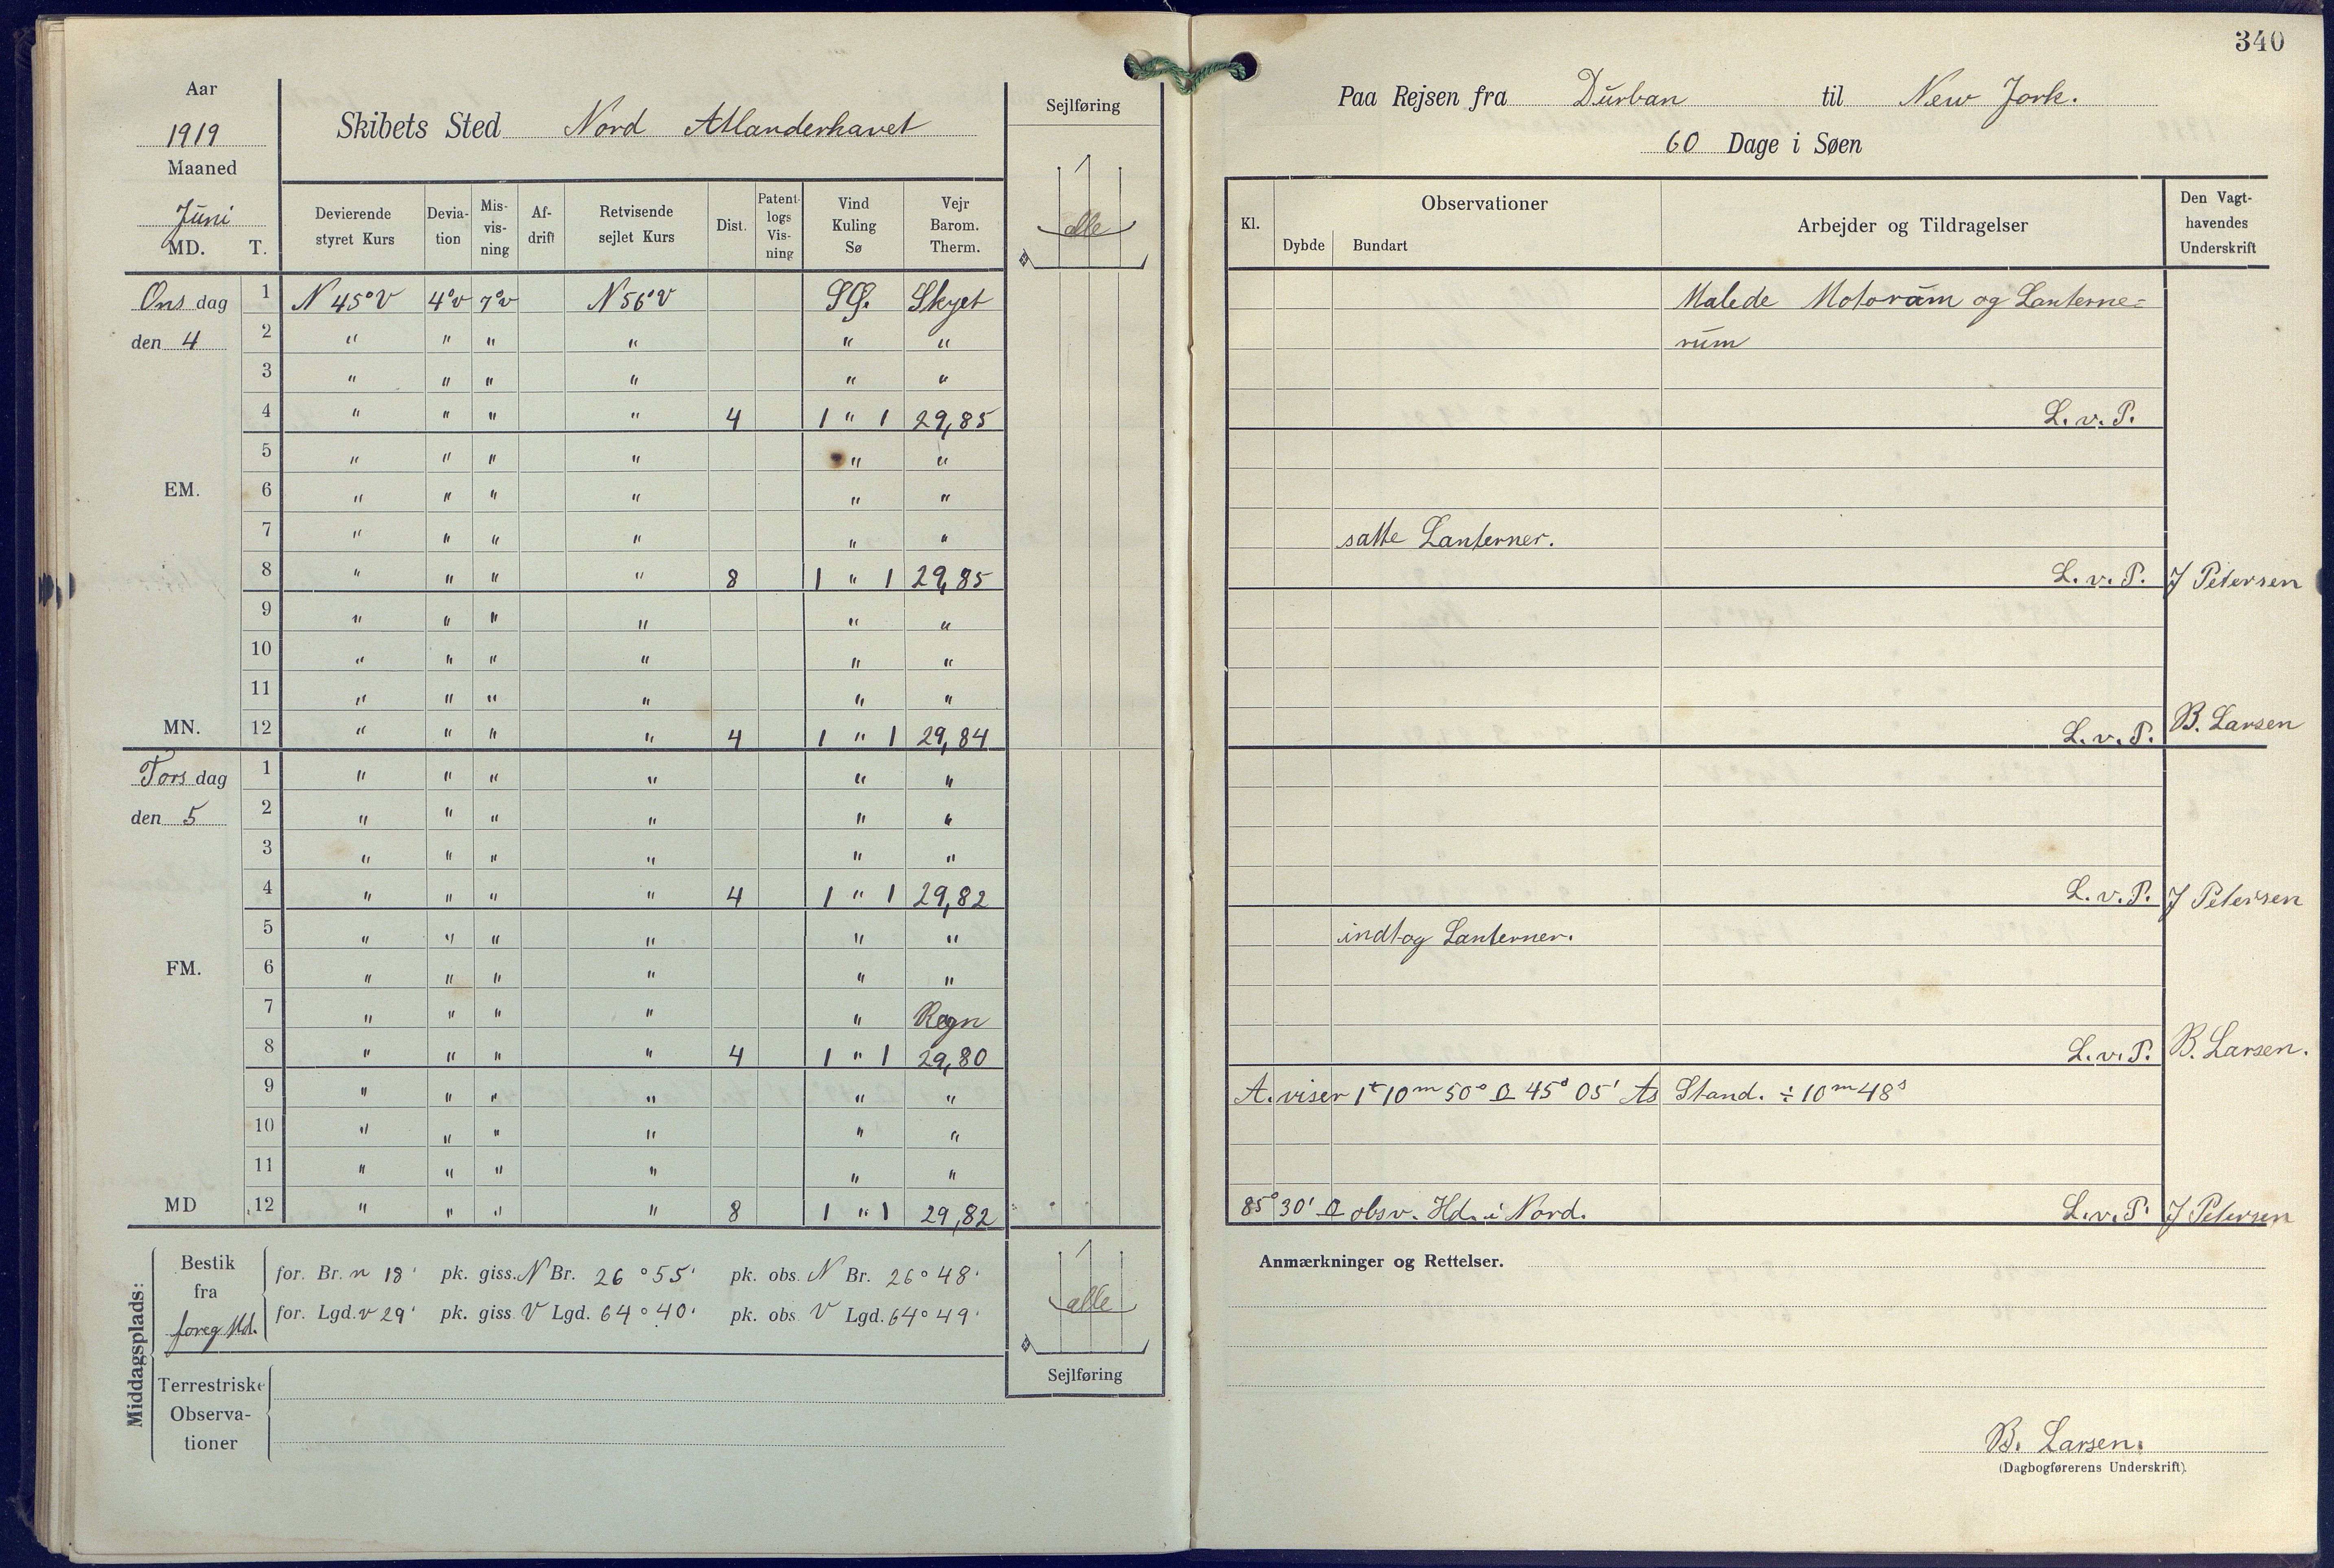 340
Aar
1919
Maaned
Juni
MD. T.
Skibets Sted Nord Atlanderhavet
Sejlføring
alle
Devierende styret Kurs
Devia-tion
Mis-vis-ning
Af-drift
Retvisende sejlet Kurs
Dist.
Patent-logs Vis-ning
Vind Kuling Sø
Vejr Barom. Therm.
Ons dag 1 N 45° V 4° v 7° v N 56° V SG. Skyet
den 4 2 " " " " " "
3 " " " " " "
4 " " " " 4 1 " 1 29,85
5 " " " " " "
EM. 6 " " " " " "
7 " " " " " "
8 " " " " 8 1 " 1 29,85
9 " " " " " "
10 " " " " " "
11 " " " " " "
MN. 12 " " " " 4 1 " 1 29,84
Tors dag 1 " " " " " "
den 5 2 " " " " " "
3 " " " " " "
4 " " " " 4 1 " 1 29,82
5 " " " " " "
FM. 6 " " " " " "
7 " " " " " Regn
8 " " " " 4 1 " 1 29,80
9 " " " " " "
10 " " " " " "
11 " " " " " "
MD 12 " " " " 8 1 " 1 29,82
Middagsplads:
Bestik fra foreg Md.
for. Br. n 18' pk. giss. N Br. 26° 55' pk. obs. N Br. 26° 48'
for. Lgd. v 29' pk. giss. V Lgd. 64° 40' pk. obs. V Lgd. 64° 49'
Terrestriske
Observa-
tioner
alle
Sejlføring
Paa Rejsen fra Durban til New Jork.
60 Dage i Søen
Kl.
Observationer
Dybde Bundart
Arbejder og Tildragelser
Den Vagt-
havendes
Underskrift
Malede Motorum og Lanterne=
rum
L. v. P.
satte Lanterner.
L. v. P. J Petersen
L. v. P. B. Larsen
L. v. P. J Petersen
indtog Lanterner.
L. v. P. B. Larsen.
A. viser 1t 10m 50s 45° 05' As Stand. ÷ 10m 48s
85° 30' obsv. Hd. i Nord. L. v. P. J Petersen
Anmærkninger og Rettelser.
B. Larsen.
(Dagbogførerens Underskrift).